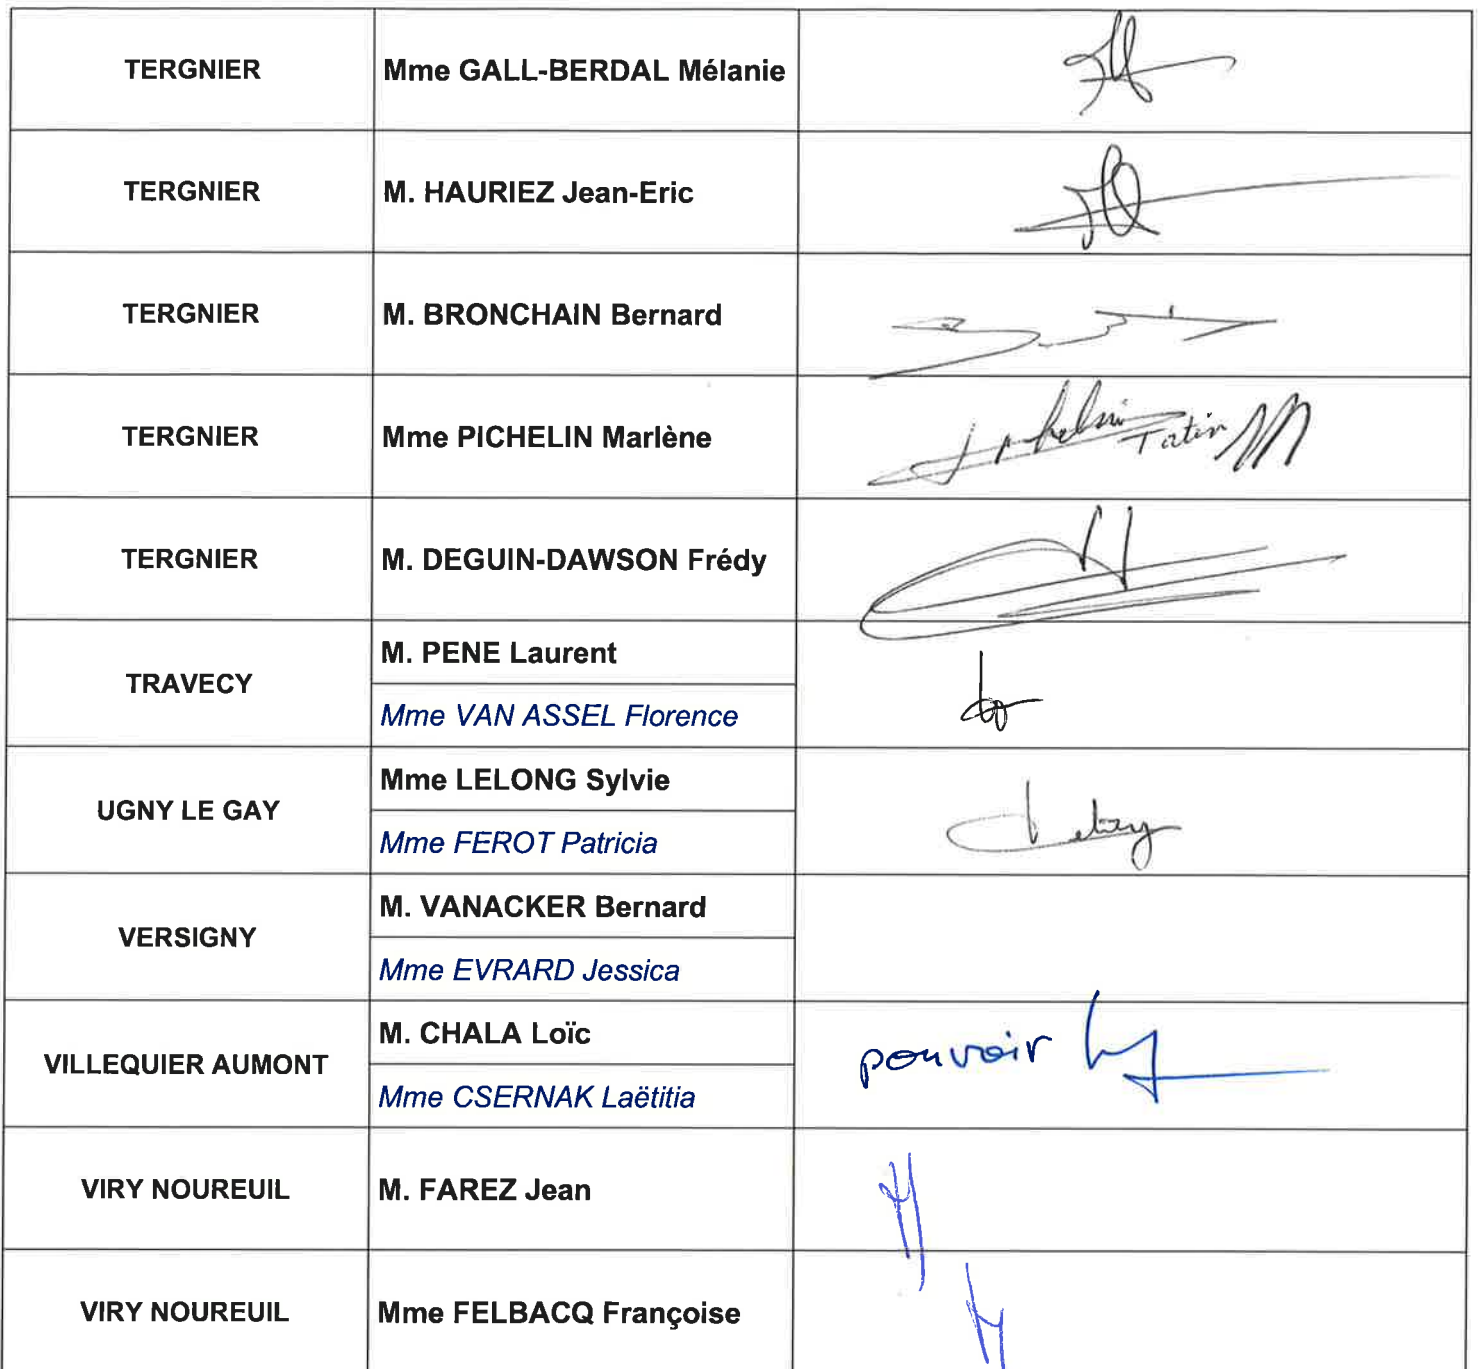 TERGNIER Mme GALL-BERDAL Mélanie
TERGNIER M. HAURIEZ Jean-Eric
TERGNIER M. BRONCHAIN Bernard
TERGNIER Mme PICHELIN Marlène
TERGNIER M. DEGUIN-DAWSON Frédy
TRAVECY M. PENE Laurent
Mme VAN ASSEL Florence
UGNY LE GAY Mme LELONG Sylvie
Mme FEROT Patricia
VERSIGNY M. VANACKER Bernard
Mme EVRARD Jessica
VILLEQUIER AUMONT M. CHALA Loïc pouvoir
Mme CSERNAK Laëtitia
VIRY NOUREUIL M. FAREZ Jean
VIRY NOUREUIL Mme FELBACQ Françoise